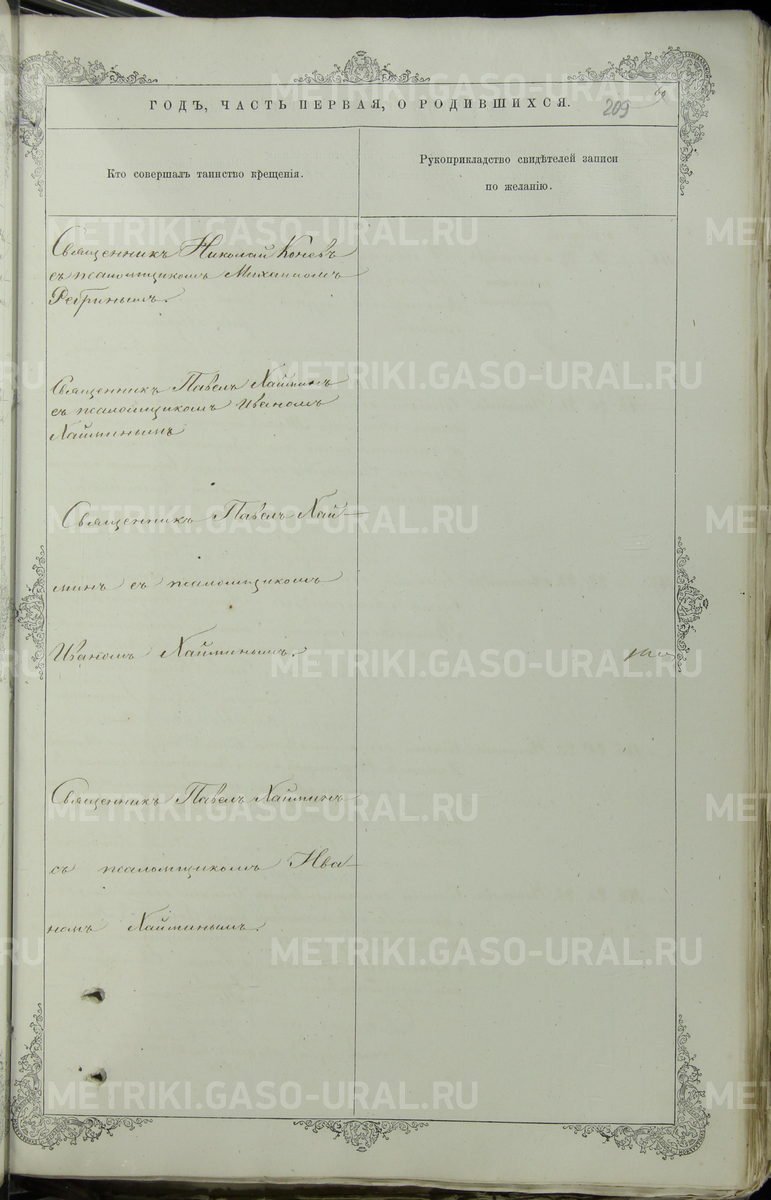 ГОДЪ, ЧАСТЬ ПЕРВАЯ, О РОДИВШИХСЯ.
209
Кто совершалъ таинство крещенія.
Рукоприкладство свидѣтелей записи
по желанію.
Священникъ Николай Коневъ
съ псаломщикомъ Михаиломъ
Ребринымъ.
Священникъ Павелъ Хайминъ
съ псаломщикомъ Иваномъ
Хайминымъ
Священникъ Павелъ Хай-
минъ съ псаломщикомъ
Иваномъ Хайминымъ.
Священникъ Павелъ Хайминъ
съ псаломщикомъ Ива-
номъ Хайминымъ.
METRIKI.GASO-URAL.RU